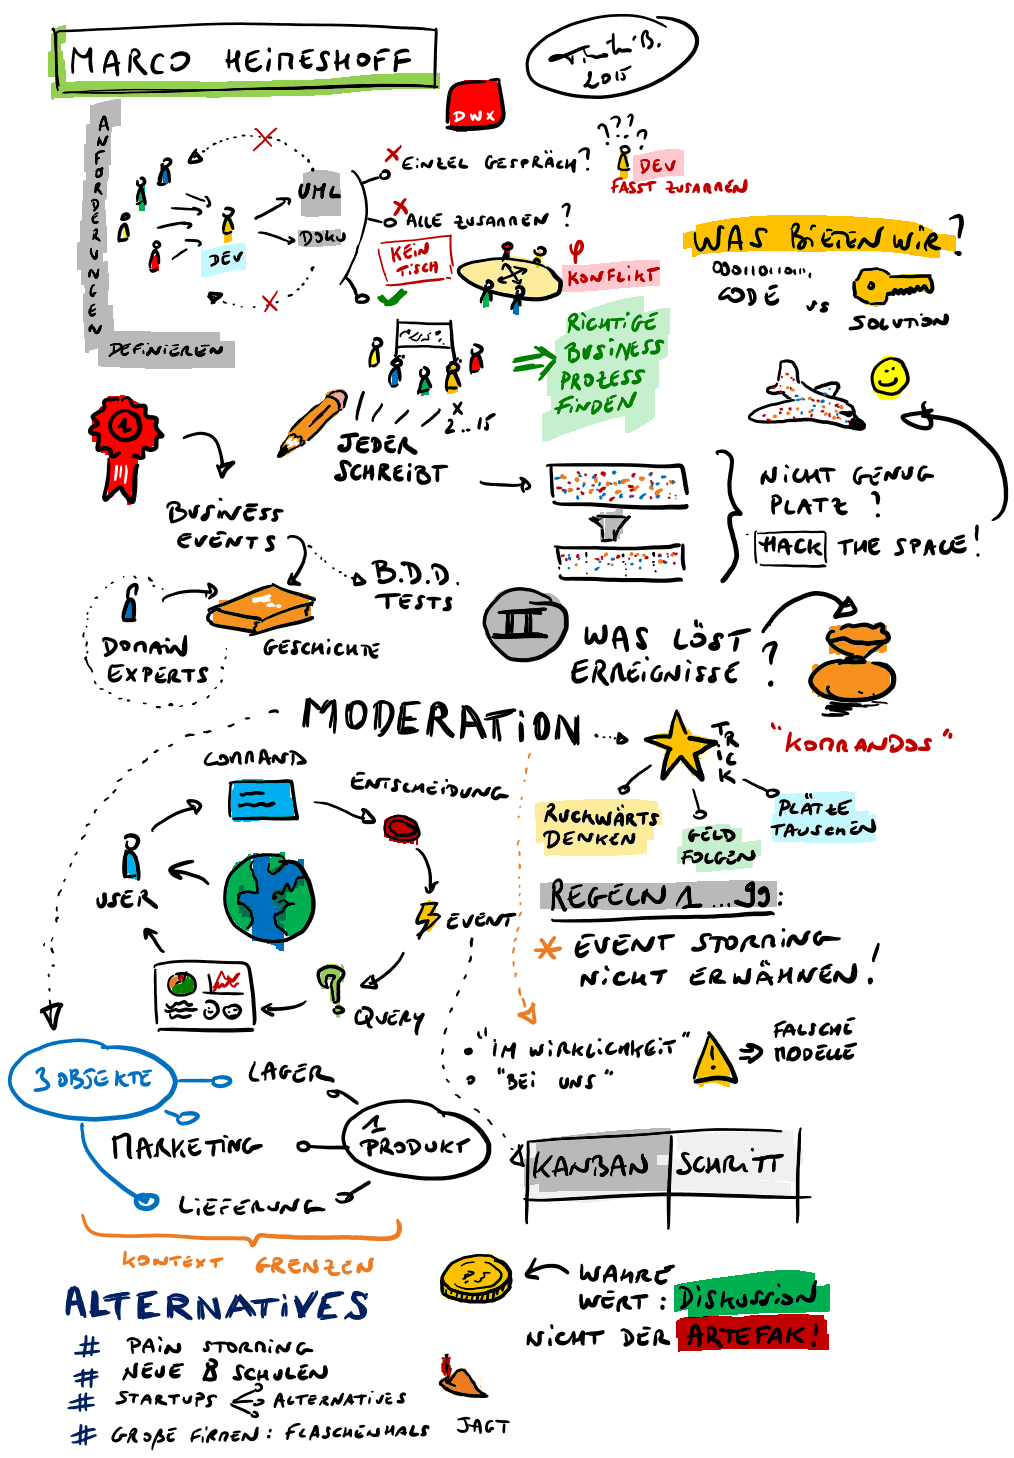 MARCO HEIMESHOFF
2015
DWX
ANFORDERUNGEN
DEFINIEREN
DEV
UML
DOKU
EINZEL GESPRÄCH?
???
DEV
FASST ZUSAMMEN
ALLE ZUSAMMEN ?
KEIN
TISCH
KONFLIKT
WAS BIETEN WIR?
CODE
vs
SOLUTION
RICHTIGE
BUSINESS
PROZESS
FINDEN
x
2...15
JEDER
SCHREIBT
1
BUSINESS
EVENTS
B.D.D.
TESTS
NICHT GENUG
PLATZ ?
HACK THE SPACE!
DOMAIN
EXPERTS
GESCHICHTE
II
WAS LÖST
ERREIGNISSE ?
"KOMMANDOS"
MODERATION
TRICK
RUCKWÄRTS
DENKEN
GELD
FOLGEN
PLÄTZE
TAUSCHEN
COMMAND
ENTSCHEIDUNG
USER
EVENT
QUERY
REGELN 1...99:
* EVENT STORMING
NICHT ERWÄHNEN!
• "IM WIRKLICHKEIT"
• "BEI UNS"
!
FALSCHE
MODELLE
3 OBJEKTE
LAGER
MARKETING
LIEFERUNG
1
PRODUKT
KONTEXT GRENZEN
KANBAN SCHRITT
WAHRE
WERT: DISKUSSION
NICHT DER ARTEFAK!
ALTERNATIVES
# PAIN STORMING
# NEUE 8 SCHULEN
# STARTUPS ALTERNATIVES
# GROßE FIRMEN: FLASCHENHALS JAGT